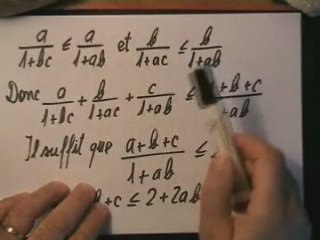 a/(1+bc) ≤ a/(1+ab) et b/(1+ac) ≤ b/(1+ab)
Donc a/(1+bc) + b/(1+ac) + c/(1+ab) ≤ +b+c/ +ab
Il suffit que (a+b+c)/(1+ab) ≤
+c ≤ 2+2ab